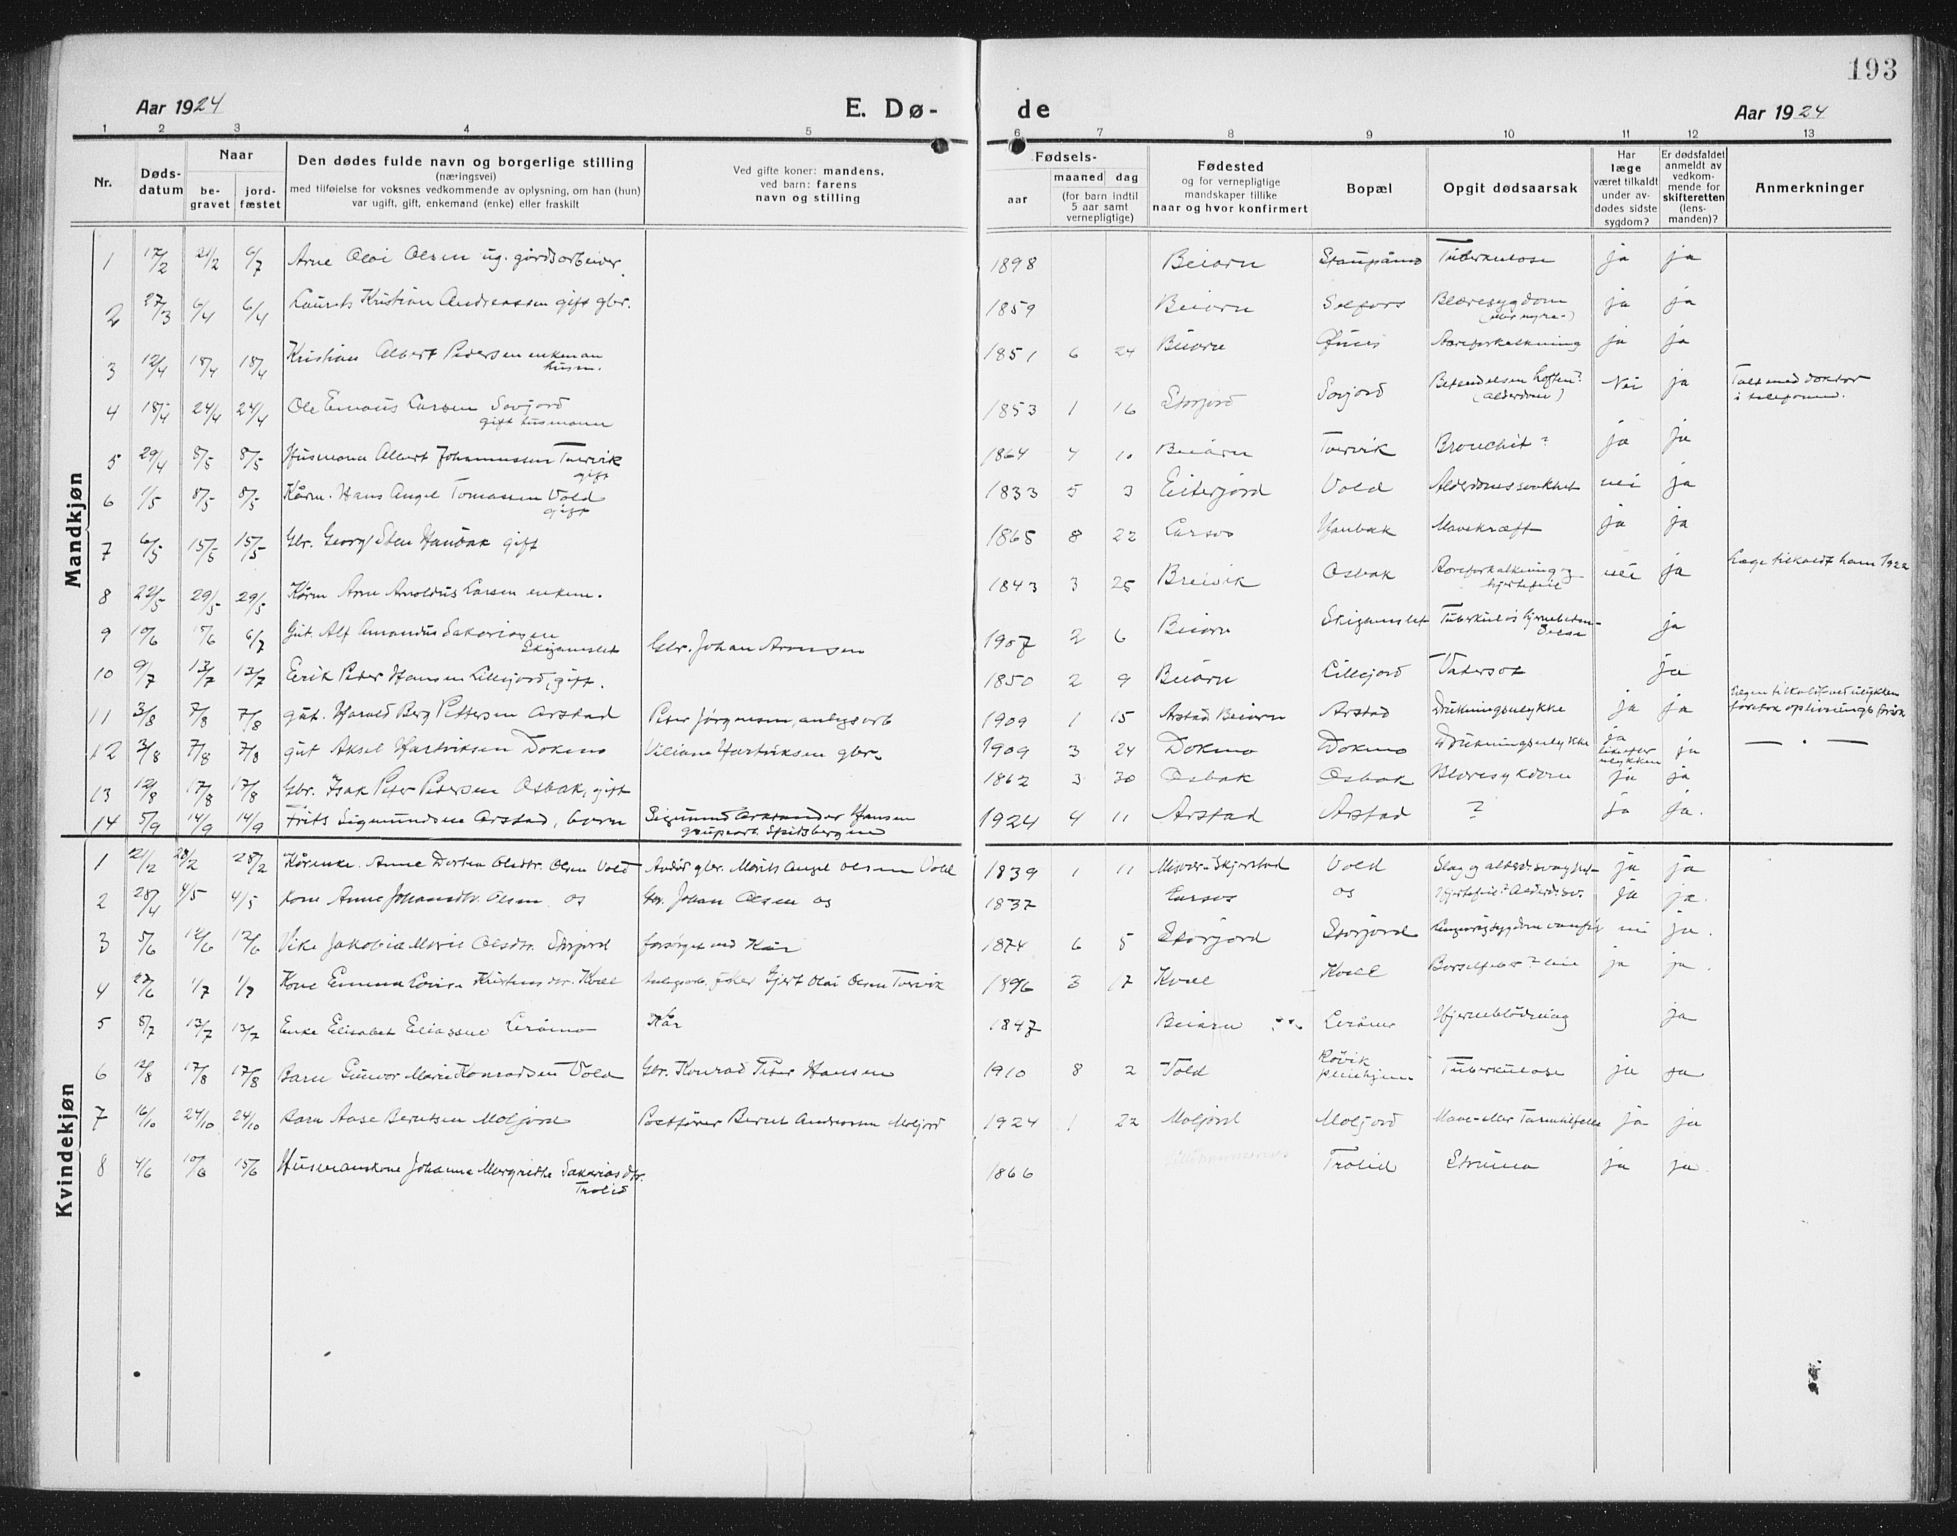 193
Aar 1924 E. Dø- de Aar 1924
1 2 3 4 5 6 7 8 9 10 11 12 13
Nr. Døds-datum Naar be-gravet jord-fæstet
Den dødes fulde navn og borgerlige stilling
(næringsvei)
med tilføielse for voksnes vedkommende av oplysning, om han (hun)
var ugift, gift, enkemand (enke) eller fraskilt
Ved gifte koner: mandens,
ved barn: farens
navn og stilling
Fødsels-
aar maaned dag
(for barn indtil
5 aar samt
vernepligtige)
Fødested
og for vernepligtige
mandskaper tillike
naar og hvor konfirmert
Bopæl
Opgit dødsaarsak
Har
læge
været tilkaldt
under av-
dødes sidste
sygdom?
Er dødsfaldet
anmeldt av
vedkom-
mende for
skifteretten
(lens-
manden)?
Anmerkninger
Mandkjøn
1 17/2 21/2 6/7 Arne Olai Olsen ug. gårdsarbeider 1898 Beiarn Tuberkulose ja ja
2 27/3 6/4 6/4 Laurits Kristian Andreassen gift gbr. 1859 Beiarn Solfors Blæresygdom ja ja
3 12/4 18/4 18/4 Kristian Albert Pedersen enkeman
husm. 1851 6 24 Beiarn Aareforkalkning ja ja
4 18/4 24/4 24/4 Ole Emaus Larsen Sovjord
gift husmann 1853 1 16 Storjord Sovjord Betændelsen hoften?
(alderdom) Nei ja Talt med doktor
i telefonen.
5 29/4 8/5 8/5 Husmann Albert Johannessen Tvervik
gift 1864 4 10 Beiarn Tvervik Bronchit? ja ja
6 1/5 8/5 8/5 Kårm. Hans Angel Tomassen Vold
gift 1833 5 3 Eiterjord Vold Alderdomssvakhet nei ja
7 6/5 15/5 15/5 Gbr. Georg Sten Hanbak gift 1865 8 22 Larsos Hanbak Mavekræft ja ja
8 22/5 29/5 29/5 Kårm Arne Arnoldus Larsen enkem. 1843 3 25 Breivik Osbak Aareforkalkning og
hjertefeil nei ja Læge tilkaldt ham 1922
9 10/6 15/6 6/7 Gut. Alf Amandus Sakariassen
Skigamslet Gbr. Johan Aronsen 1907 2 6 Beiarn Skigamslet ja
10 9/7 13/7 13/7 Eirik Peter Hansen Lillejord, gift. 1850 2 9 Beiarn Lillejord Vatersot ja
11 3/8 7/8 7/8 gut. Harald Berg Pettersen Arstad Peter Jørgensen, anlegsarb 1909 1 15 Arstad Beiarn Arstad Drukningsulykke ja ja
12 3/8 7/8 7/8 gut Aksel Hartviksen Dokmo Viliam Hartviksen gbr. 1909 3 24 Dokmo Dokmo Drukningsulykke ja
like efter
ulykken ja — . —
13 12/8 17/8 17/8 Gbr. Isak Peter Petersen Osbak, gift 1862 3 30 Osbak Osbak Blæresykdom ja ja
14 5/9 14/9 14/9 Frits Sigmundsen Arstad, barn Sigmund Aleksander Hansen
gruvearb. Spitsbergen 1924 4 11 Arstad Arstad ? ja ja.
Kvindekjøn
1 21/2 28/2 28/2 Kårenke. Anne Dortea Olsdtr. Olsen Vold gbr. Morits Angel Olsen Vold 1839 1 11 Misvær-Skjerstad Vold ja ja
2 28/4 4/5 4/5 Kone Anne Johansdtr. Olsen os Gbr. Johan Olsen os 1837 Larsos os ja ja.
3 5/6 12/6 12/6 Pike Jakobia Marie Olsdtr. Storjord forsørget ved Kår 1874 6 5 Storjord Storjord nei ja.
4 27/6 1/7 1/7 Kone Emma Lovise Kristensdtr. Kvæl Ejert Olai Olsen Tvervik 1896 3 17 Kvæl Kvæl Barselfeber? ja ja.
5 8/7 13/7 13/7 Enke Elisabet Eliassen Leråmo Kår 1847 Beiarn Leråmo Hjerneblødning ja
6 12/8 17/8 17/8 Barn Gunvor Marie Konradsen Vold Gbr. Konrad Peter Hansen 1910 8 2 Vold Røvik
pleiehjem Tuberkulose ja ja
7 16/10 24/10 24/10 Barn Aase Berntsen Moljord Postfører Bernt Andreassen Moljord 1924 1 22 Moljord Moljord Mave- eller Tarmtilfelle ja ja
8 4/6 10/6 15/6 Husmannskone Johanna Margrethe Sakariasdtr.
Trolid 1866 Trolid Struma ja ja.